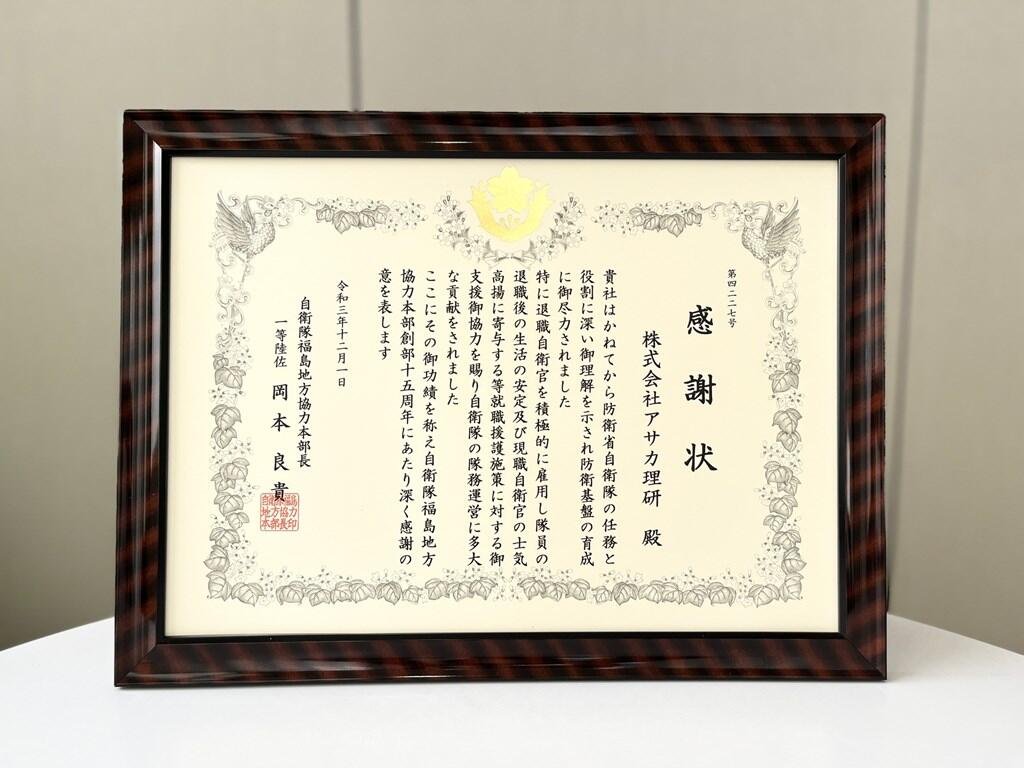 第四二二七号
感謝状
株式会社アサカ理研 殿
貴社はかねてから防衛省自衛隊の任務と
役割に深い御理解を示され防衛基盤の育成
に御尽力されました
特に退職自衛官を積極的に雇用し隊員の
退職後の生活の安定及び現職自衛官の士気
高揚に寄与する等就職援護施策に対する御
支援御協力を賜り自衛隊の隊務運営に多大
な貢献をされました
ここにその御功績を称え自衛隊福島地方
協力本部創部十五周年にあたり深く感謝の
意を表します
令和三年十二月一日
自衛隊福島地方協力本部長
一等陸佐 岡本良貴
自衛隊福島
地方協力
本部長印